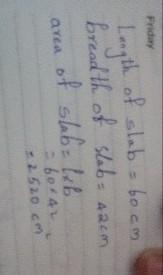 Friday
Length of slab = 60 cm
breadth of slab = 42cm
area of slab = lxb
= 60×42
= 2520 cm²